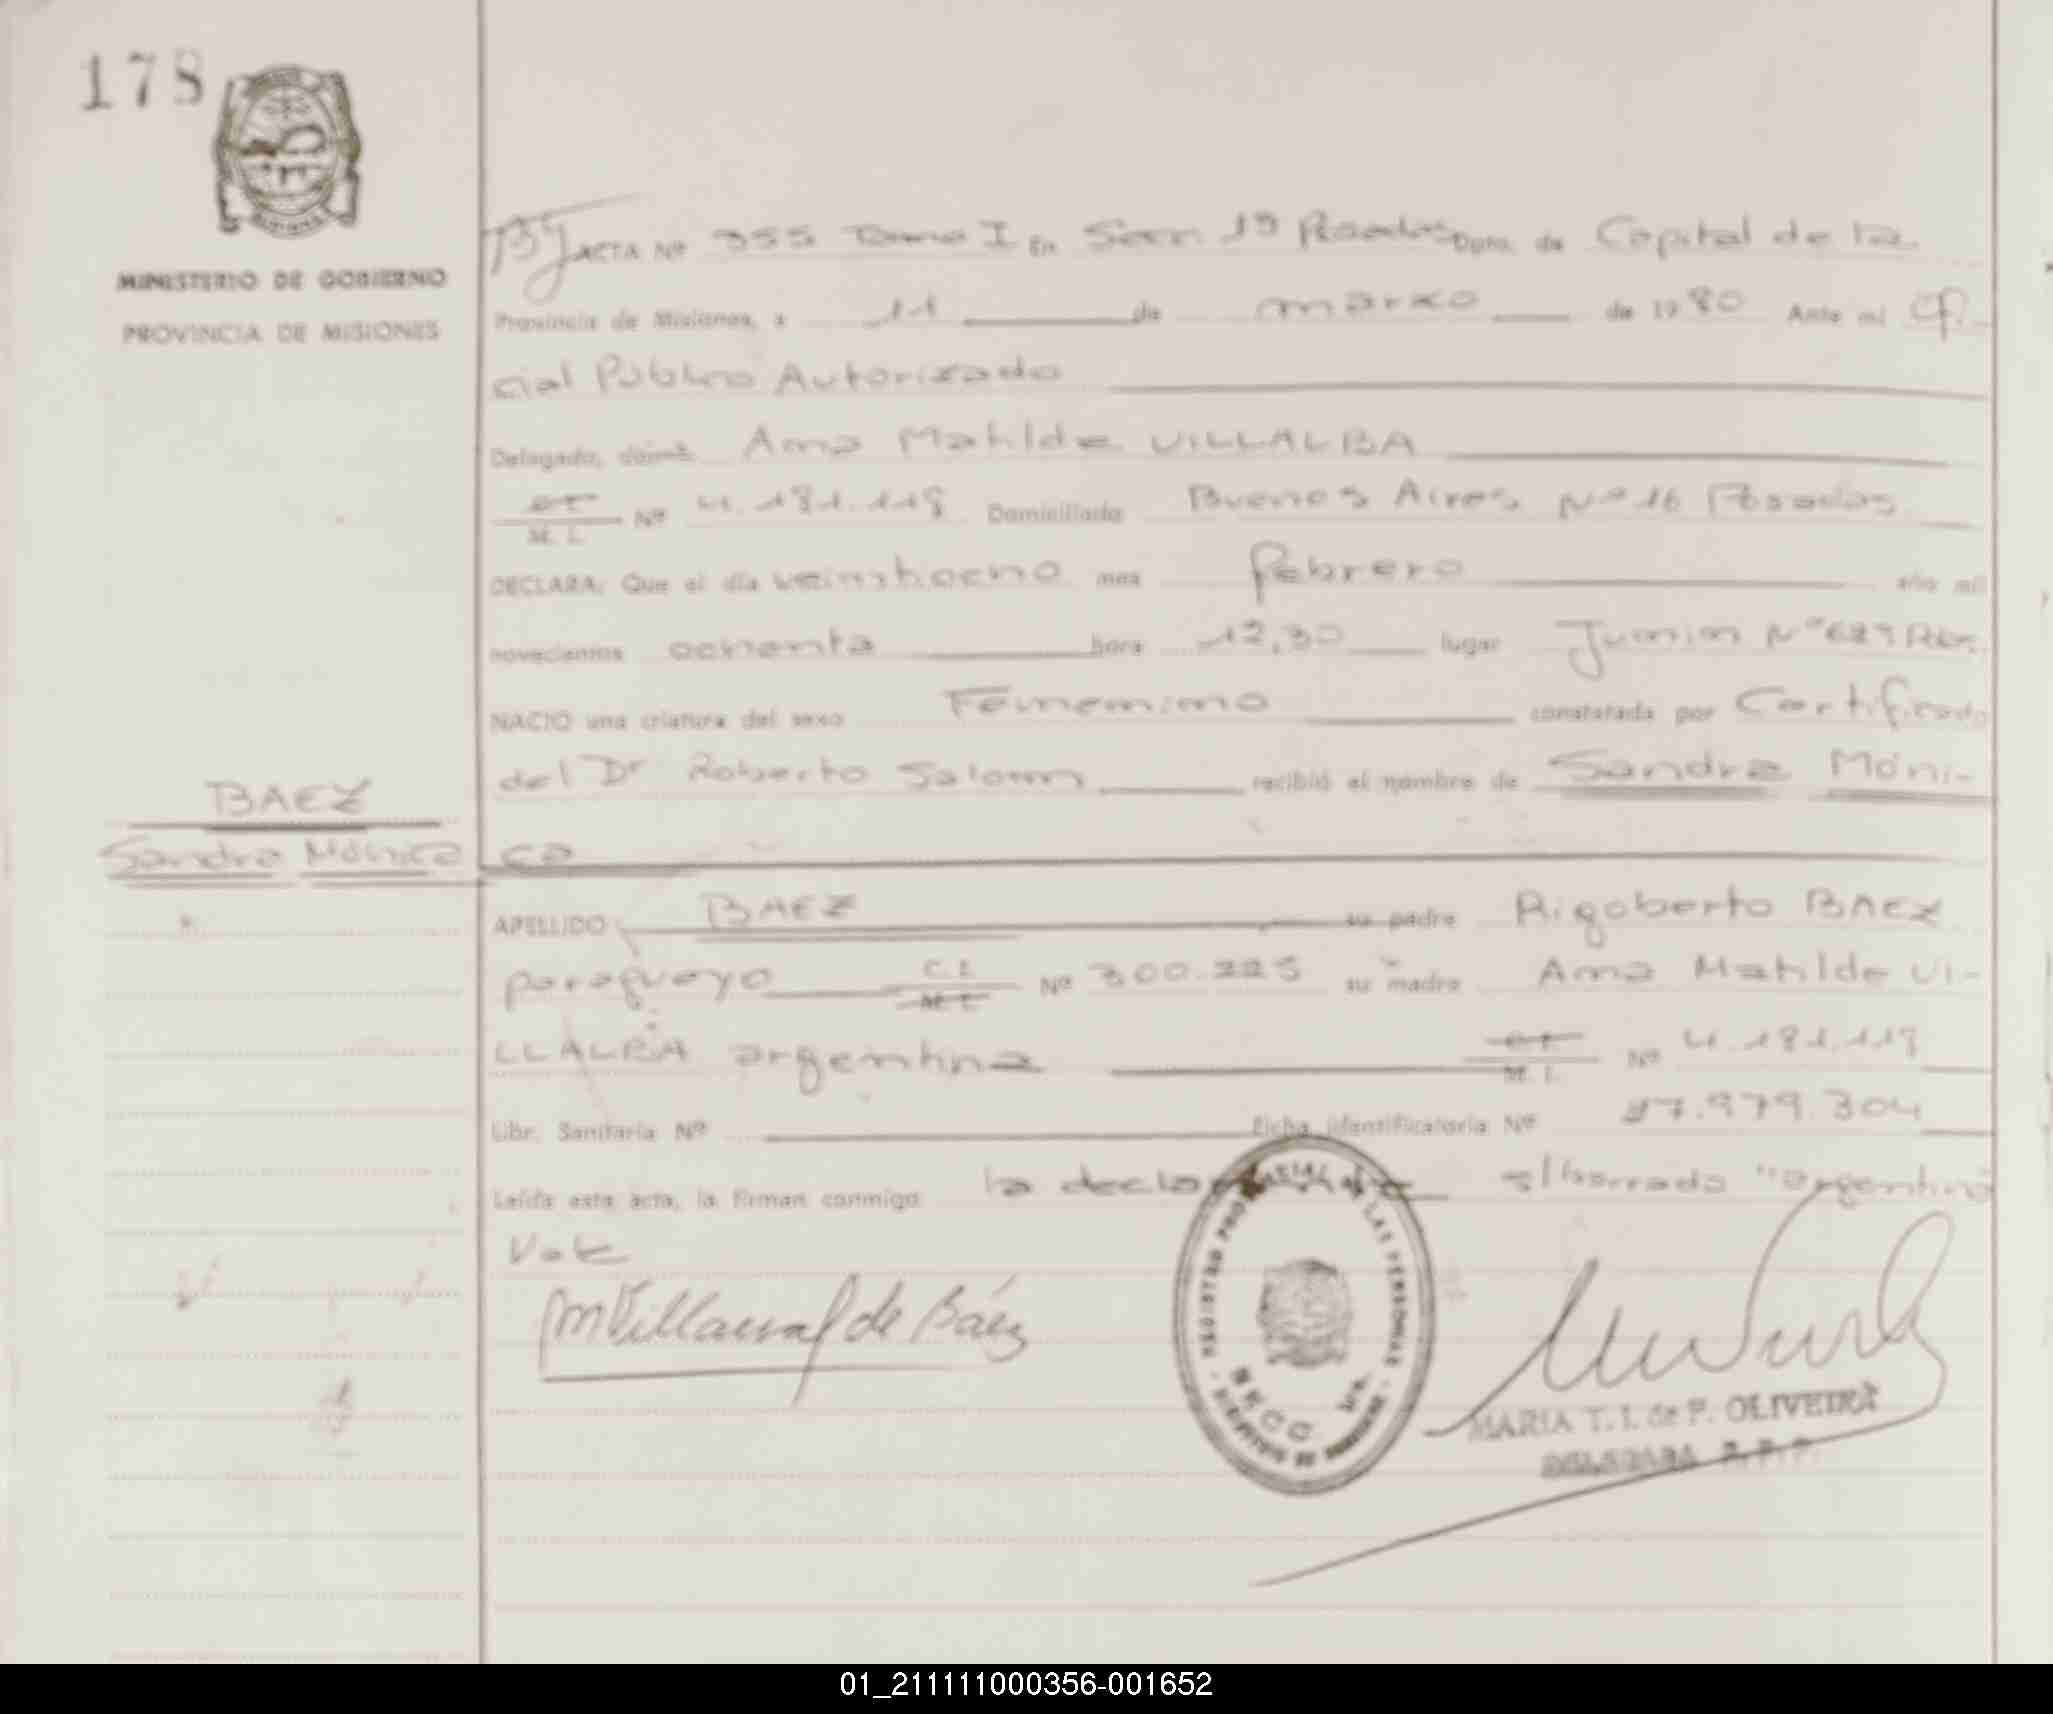 178
MINISTERIO DE GOBIERNO
PROVINCIA DE MISIONES
ACTA Nº 355 Tomo I En Secc 1ª Posadas Dpto. de Capital de la
Provincia de Misiones, a 11 de marzo de 1980 Ante mi Ofi-
cial Público Autorizado
Delegado, Ana Matilde VILLALBA
M. I. Nº 4.181.118 Domiciliado Buenos Aires Nº 16 Posadas
DECLARA: Que el día veintiocho mes febrero año mil
novecientos ochenta hora 12,30 lugar Junin Nº
NACIO una criatura del sexo Femenino constatada por Certificado
del Dr Roberto recibió el nombre de Sandra Móni-
ca
BAEZ
Sandra Mónica
APELLIDO BAEZ su padre Rigoberto BAEZ
paraguayo C. I. M. I. Nº 300.225 su madre Ana Matilde VI-
LLALBA argentina M. I. Nº 4.181.118
Libr. Sanitaria Nº Ficha identificatoria Nº 27.979.304
Leída esta acta, la firman conmigo la s/borrado "argentina"
Vale
MVillalba de Báez
REGISTRO PROVINCIAL DE LAS PERSONAS
SECC 1ra.
MINISTERIO DE GOBIERNO
MARIA T. I. de P. OLIVEIRA
DELEGADA R. P. P.
01_211111000356-001652